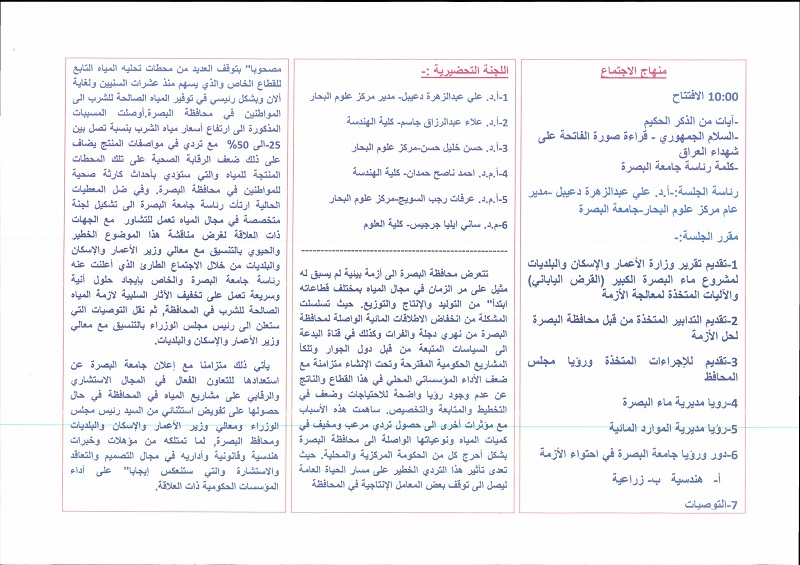 منهاج الاجتماع
10:00 الافتتاح
-آيات من الذكر الحكيم
-السلام الجمهوري - قراءة صورة الفاتحة على
شهداء العراق
-كلمة رئاسة جامعة البصرة
رئاسة الجلسة:-أ.د. علي عبدالزهرة دعيبل -مدير
عام مركز علوم البحار-جامعة البصرة
مقرر الجلسة:-
1-تقديم تقرير وزارة الأعمار والإسكان والبلديات
لمشروع ماء البصرة الكبير (القرض الياباني)
والآليات المتخذة لمعالجة الأزمة
2-تقديم التدابير المتخذة من قبل محافظة البصرة
لحل الأزمة
3-تقديم للإجراءات المتخذة ورؤيا مجلس
المحافظ
4-رويا مديرية ماء البصرة
5-رؤيا مديرية الموارد المائية
6-دور ورؤيا جامعة البصرة في احتواء الأزمة
أ- هندسية ب- زراعية
7-التوصيات
اللجنة التحضيرية :-
1-أ.د. علي عبدالزهرة دعيبل- مدير مركز علوم البحار
2-أ.د. علاء عبدالرزاق جاسم- كلية الهندسة
3-أ.د. حسن خليل حسن-مركز علوم البحار
4-أ.م.د. احمد ناصح حمدان- كلية الهندسة
5-أ.م.د. عرفات رجب السويج-مركز علوم البحار
6-م.د. ساني ايليا جرجيس- كلية العلوم
--------------------------------------------
تتعرض محافظة البصرة الى أزمة بينية لم يسبق له
مثيل على مر الزمان في مجال المياه بمختلف قطاعاته
ابتدأ" من التوليد والإنتاج والتوزيع. حيث تسلسلت
المشكلة من انخفاض الاطلاقات المائية الواصلة لمحافظة
البصرة من نهري دجلة والفرات وكذلك في قناة البدعة
الى السياسات المتبعة من قبل دول الجوار وتلكأ
المشاريع الحكومية المقترحة وتحت الإنشاء متزامنة مع
ضعف الأداء المؤسساتي المحلي في هذا القطاع والناتج
عن عدم وجود رؤيا واضحة للاحتياجات وضعف في
التخطيط والمتابعة والتخصيص. ساهمت هذه الأسباب
مع مؤثرات أخرى الى حصول تردي مرعب ومخيف في
كميات المياه ونوعياتها الواصلة الى محافظة البصرة
بشكل أحرج كل من الحكومة المركزية والمحلية. حيث
تعدى تأثير هذا التردي الخطير على مسار الحياة العامة
ليصل الى توقف بعض المعامل الإنتاجية في المحافظة
مصحوبا" بتوقف العديد من محطات تحليه المياه التابع
للقطاع الخاص والذي يسهم منذ عشرات السنيين ولغاية
ألان وبشكل رئيسي في توفير المياه الصالحة للشرب الى
المواطنين في محافظة البصرة.أوصلت المسببات
المذكورة الى ارتفاع أسعار مياه الشرب بنسبة تصل بين
25-الى 50% مع تردي في مواصفات المنتج يضاف
على ذلك ضعف الرقابة الصحية على تلك المحطات
المنتجة للمياه والتي ستؤدي بأحداث كارثة صحية
للمواطنين في محافظة البصرة. وفي ضل المعطيات
الحالية ارتأت رئاسة جامعة البصرة الى تشكيل لجنة
متخصصة في مجال المياه تعمل للتشاور مع الجهات
ذات العلاقة لغرض مناقشة هذا الموضوع الخطير
والحيوي بالتنسيق مع معالي وزير الأعمار والإسكان
والبلديات من خلال الاجتماع الطارئ الذي أعلنت عنه
رئاسة جامعة البصرة والخاص بإيجاد حلول أنية
وسريعة تعمل على تخفيف الآثار السلبية لازمة المياه
الصالحة للشرب في المحافظة, ثم نقل التوصيات التي
ستعلن الى رئيس مجلس الوزراء بالتنسيق مع معالي
وزير الأعمار والإسكان والبلديات.
يأتي ذلك متزامنا مع إعلان جامعة البصرة عن
استعدادها للتعاون الفعال في المجال الاستشاري
والرقابي على مشاريع المياه في المحافظة في حال
حصولها على تفويض استثنائي من السيد رئيس مجلس
الوزراء ومعالي وزير الأعمار والإسكان والبلديات
ومحافظ البصرة, لما تمتلكه من مؤهلات وخبرات
هندسية وقانونية وأداريه في مجال التصميم والتعاقد
والاستشارة والتي ستنعكس إيجابا" على أداء
المؤسسات الحكومية ذات العلاقة.